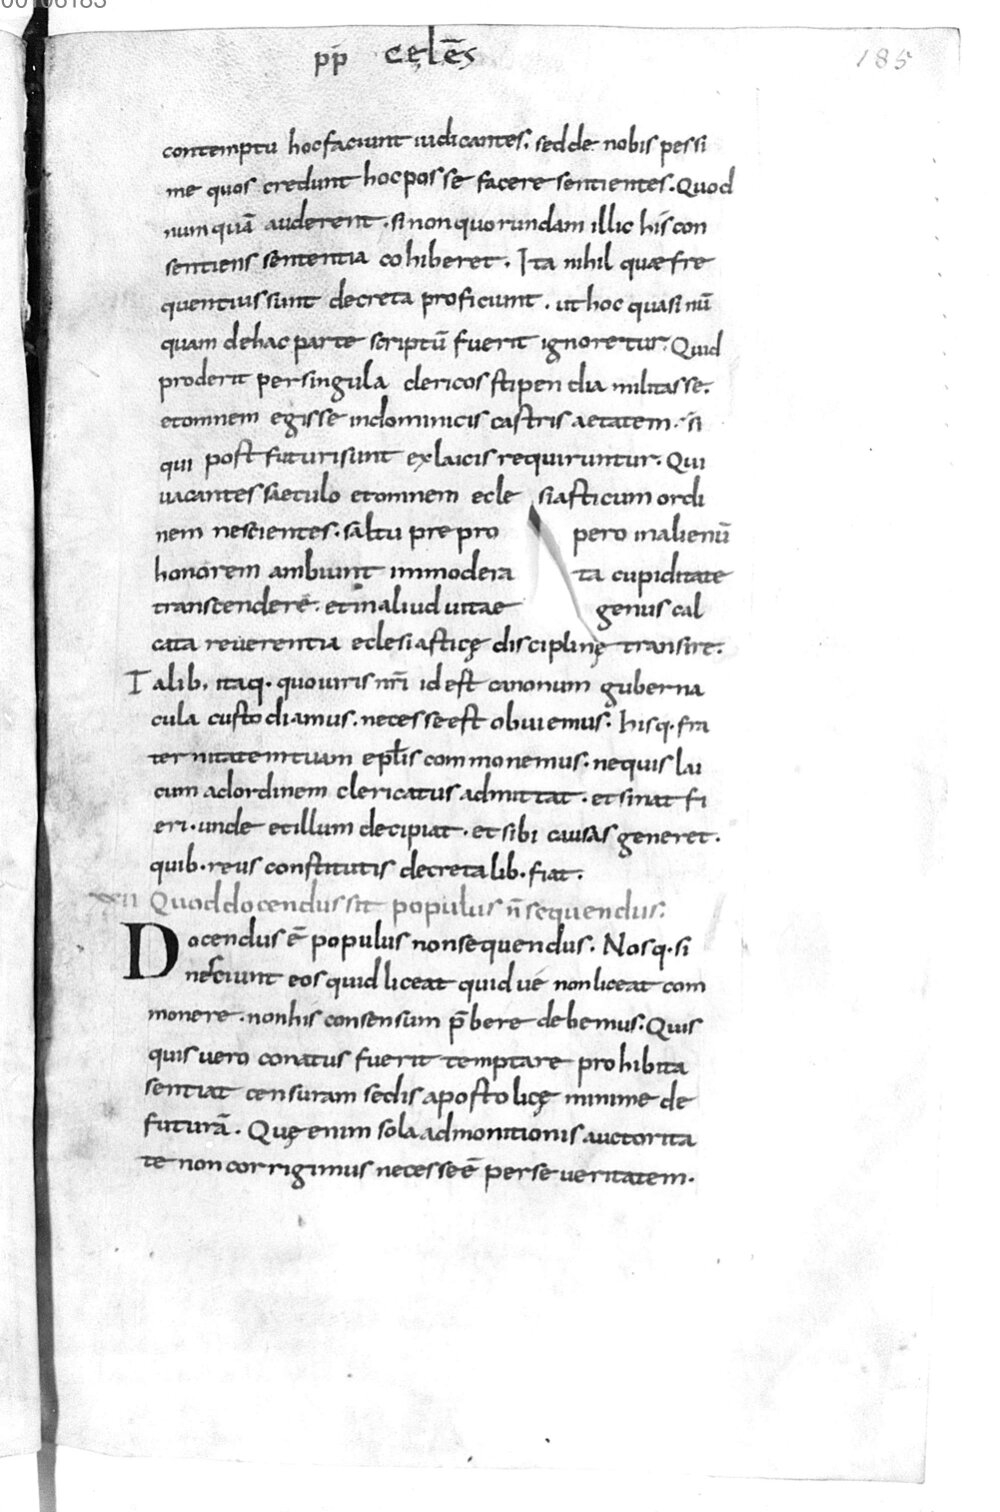 pp̄ cęlēs
185
contemptu hoc faciunt iudicantes. sed de nobis pessi
me quos credunt hoc posse facere sentientes. Quod
numquā auderent. si non quorundam illic his con
sentiens sententia cohiberet. Ita nihil quæ fre
quentius sunt decreta proficiunt. ut hoc quasi nū
quam de hac parte scriptū fuerit ignoretur. Quid
proderit per singula clericos stipendia militasse.
et omnem egisse in dominicis castris aetatem. si
qui post futuri sunt ex laicis requiruntur. Qui
uacantes saeculo et omnem ecle siasticum ordi
nem nescientes. saltu pre pro pero in alienū
honorem ambiunt immodera ta cupiditate
transcendere. et in aliud uitae genus cal
cata reuerentia eclesiasticę disciplinę transire.
Talib. itaq. quo uiris nr̄i id est canonum guberna
cula custodiamus. necesse est obuiemus. hisq. fra
ternitatem tuam epłis commonemus. ne quis lai
cum ad ordinem clericatus admittat. et sinat fi
eri. unde et illum decipiat. et sibi causas generet.
quib. reus constitutis decretalib. fiat.
xxii Quod docendus sit populus n̄ sequendus.
Docendus ē populus non sequendus. Nosq. si
nesciunt eos quid liceat quid ue non liceat com
monere. non his consensum p̄bere debemus. Quis
quis uero conatus fuerit temptare prohibita
sentiat censuram sedis apostolicę minime de
futurā. Quę enim sola admonitionis auctorita
te non corrigimus necesse ē per seueritatem.